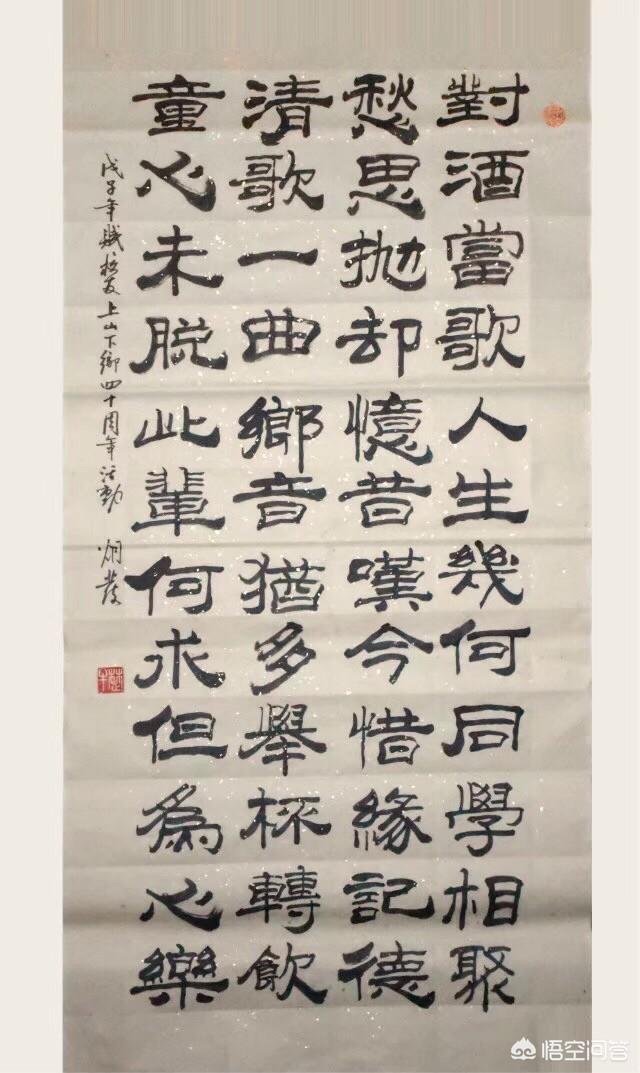 對酒當歌人生幾何同學相聚
愁思拋却憶昔嘆今惜緣記德
清歌一曲鄉音猶多舉杯轉飲
童心未脱此輩何求但為心樂
戊子年賦校友上山下鄉四十周年活動
悟空问答